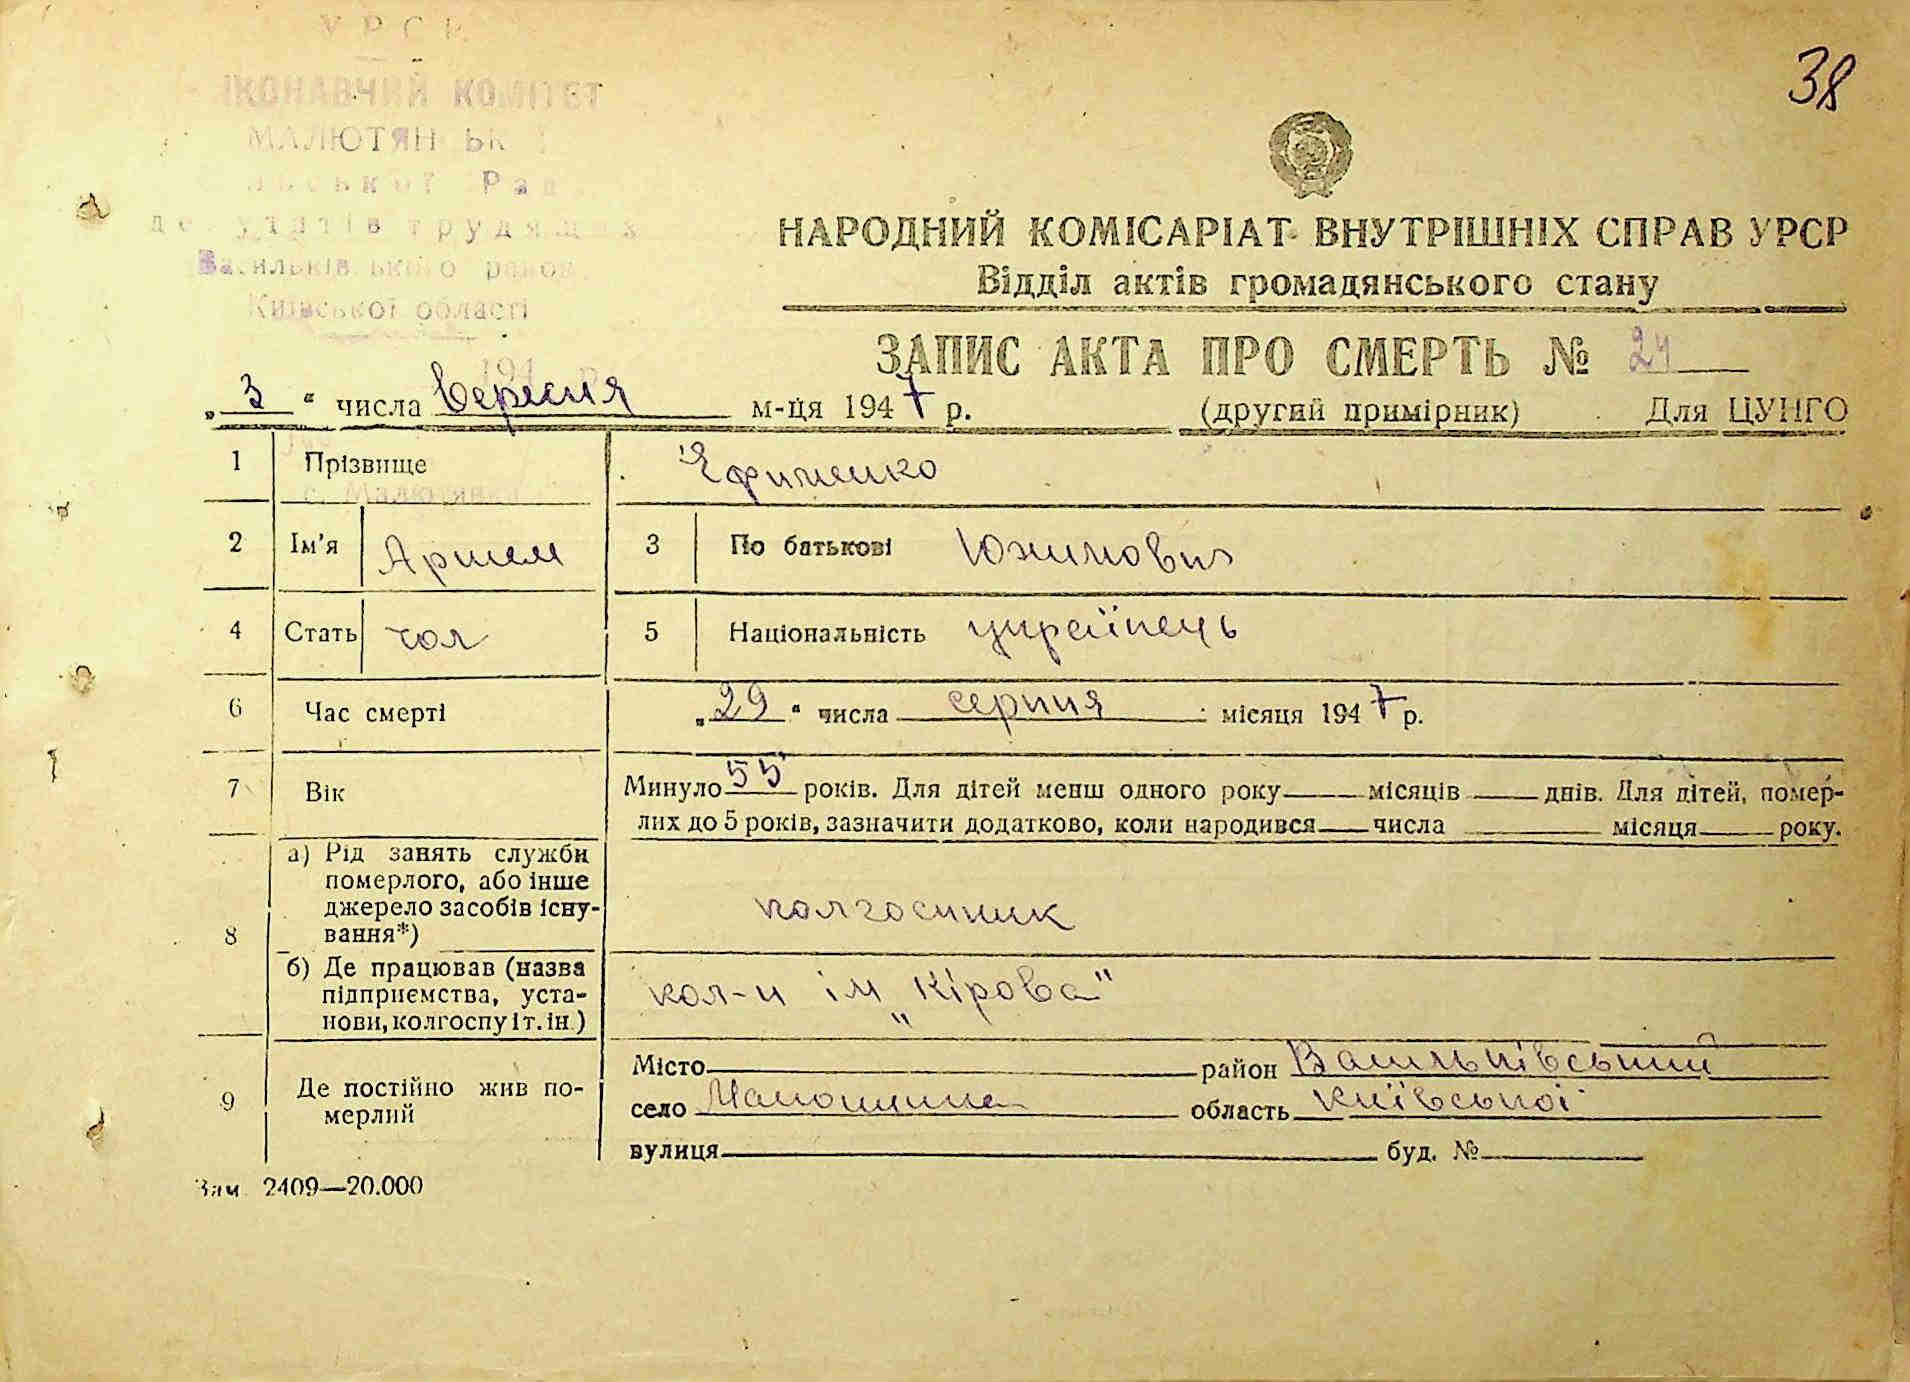 38
УРСР
ВИКОНАВЧИЙ КОМІТЕТ
МАЛЮТЯНСЬКОЇ
Сільської Ради
депутатів трудящих
Васильківського району
Київської області
194 р.
с. Малютянка
НАРОДНИЙ КОМІСАРІАТ ВНУТРІШНІХ СПРАВ УРСР
Відділ актів громадянського стану
ЗАПИС АКТА ПРО СМЕРТЬ № 24
„3“ числа Вересня м-ця 1947 р. (другий примірник) Для ЦУНГО
1 Прізвище Єфименко
2 Ім'я Артем 3 По батькові Юхимович
4 Стать чол 5 Національність українець
6 Час смерті „29“ числа серпня місяця 1947 р.
7 Вік Минуло 55 років. Для дітей менш одного року місяців днів. Для дітей, помер-
лих до 5 років, зазначити додатково, коли народився числа місяця року.
8 а) Рід занять служби
померлого, або інше
джерело засобів існу-
вання*) колгоспник
б) Де працював (назва
підприємства, уста-
нови, колгоспу і т. ін.) кол-п ім „Кірова"
9 Де постійно жив по-
мерлий
Місто район Васильківський
село Малютинка область Київської
вулиця буд. №
Зам. 2409—20.000